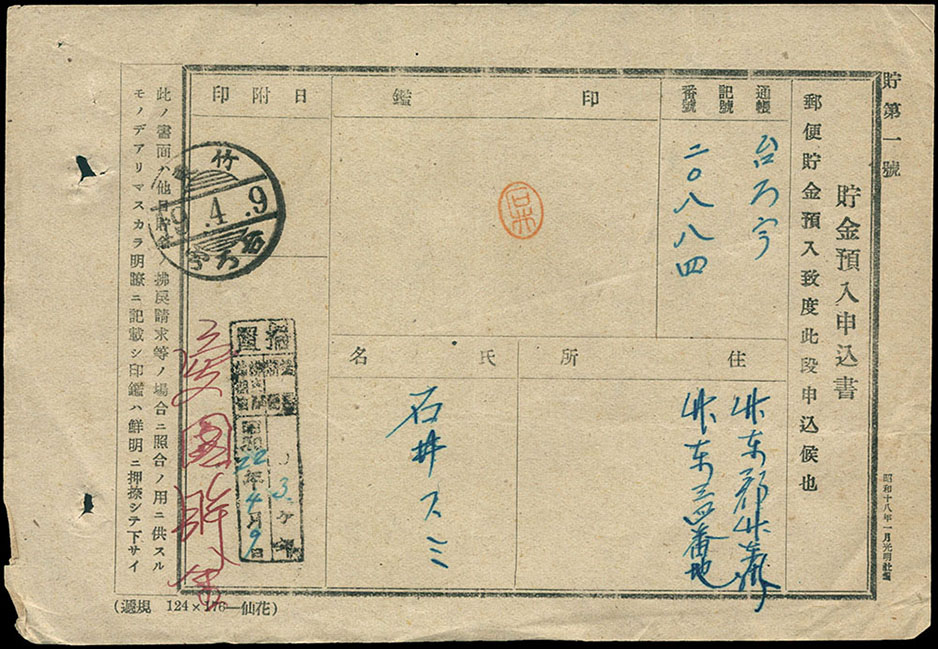 貯第一號
貯金預入申込書
郵便貯金預入致度此段申込候也
昭和十八年一月光明社納
通帳
記號
番號
台万宁
二〇八八四
印鑑
日附印
竹
19.4.9
住所
竹東郡竹東街
竹東
番地
氏名
石井スミ
据置
3ヶ年
22年4月9日
愛國貯金
此ノ書面ハ他日貯金ノ拂戻請求等ノ場合ニ照合ノ用ニ供スル
モノデアリマスカラ明瞭ニ記載シ印鑑ハ鮮明ニ押捺シテ下サイ
(遞規 124×176—仙花)